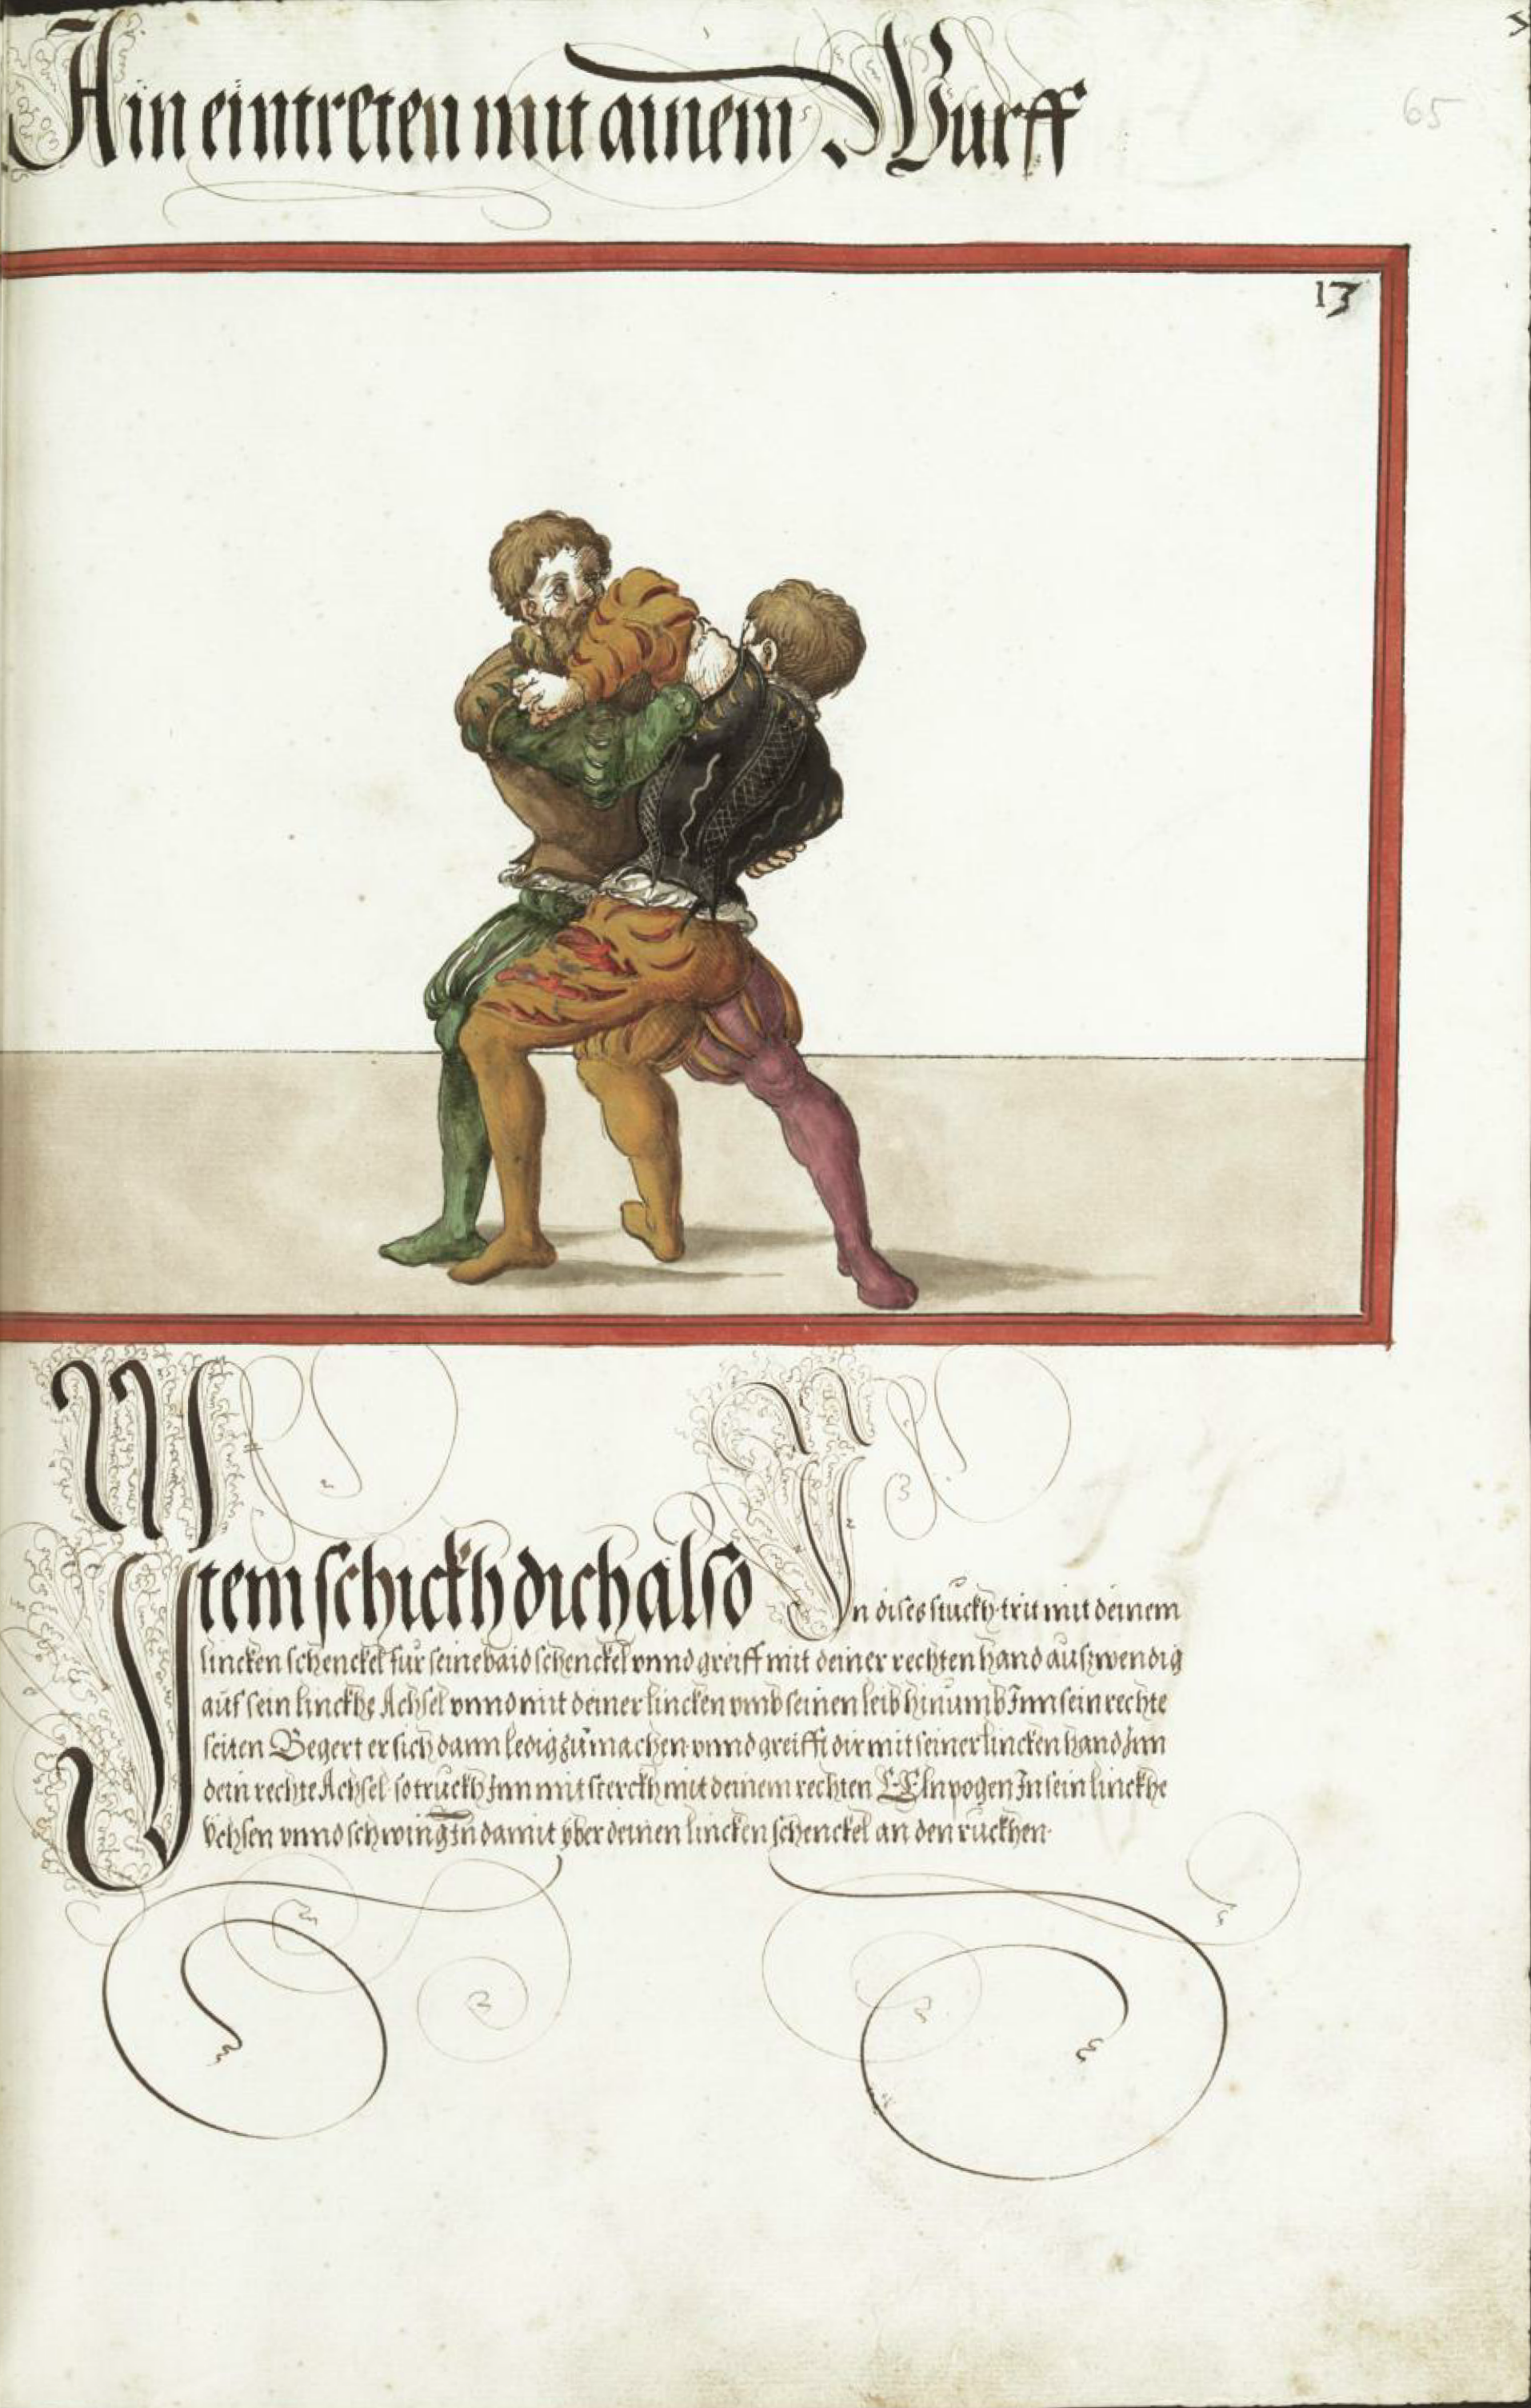 Ain eintreten mit ainem Wurff
65
13
Ytem schickh dich also In dises stuckh trit mit deinem
lincken schenckel fur seine baid schenckel vnnd greiff mit deiner rechten hand auszwendig
auf sein linckhe Achsel vnnd mit deiner lincken vmb seinen leib hinumb Inn sein rechte
seiten Begert er sich dann ledig zumachen vnnd greifft dir mit seiner lincken hand Inn
dein rechte Achsel so truckh Inn mit sterckh mit deinem rechten Elnpogen In sein linckhe
Vchsen vnnd schwing In damit yber deinen lincken schenckel an den ruckhen